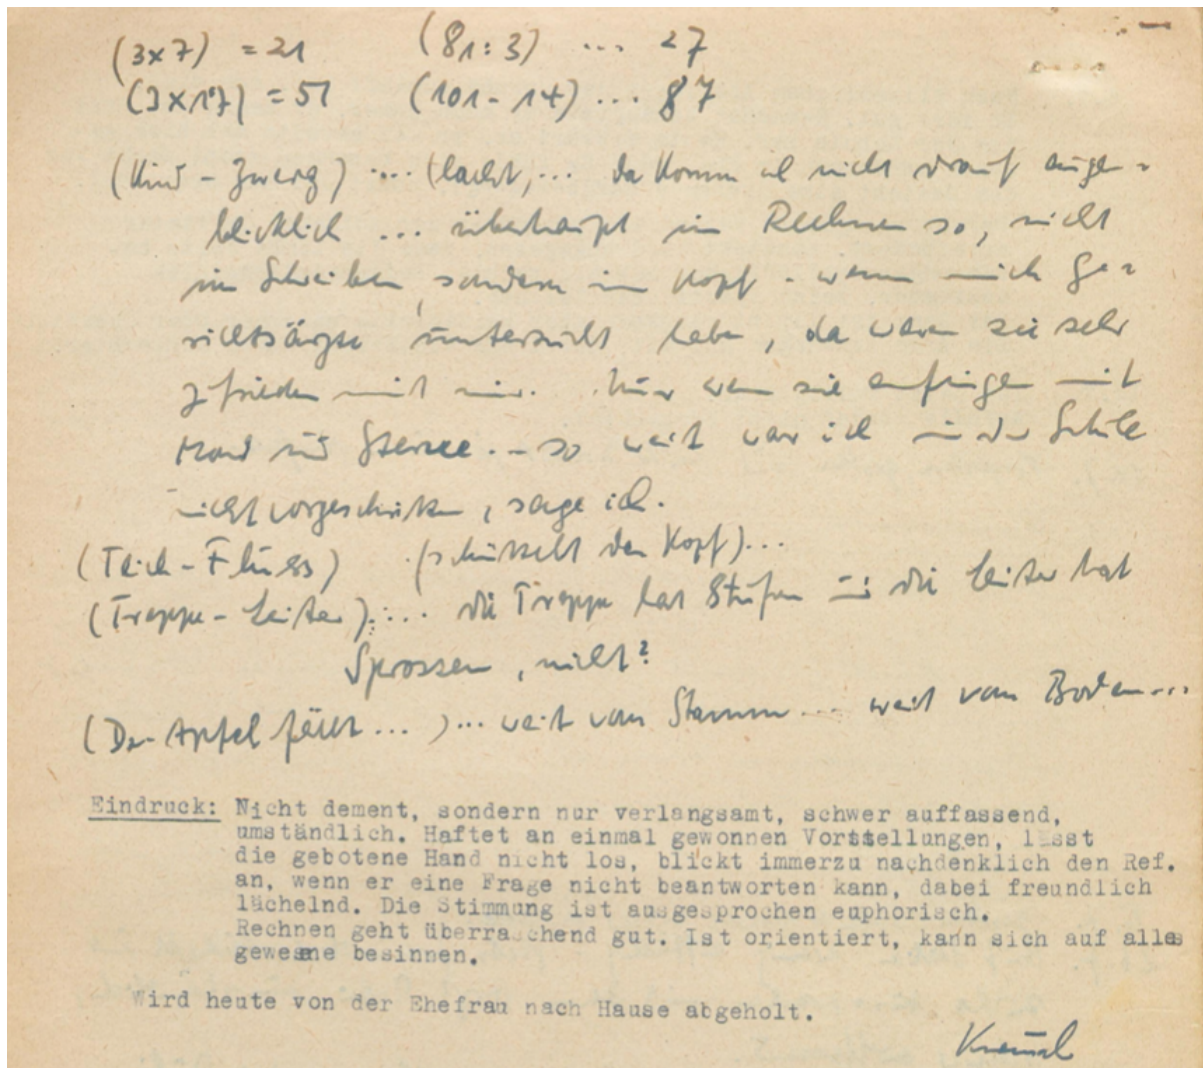 (3x7) = 21 (81:3) ... 27
(3x17) = 51 (101 - 14) ... 87
(Kind - Zwerg) .... (lacht, ... da komm ich nicht drauf augen-
blicklich ... überhaupt im Rechnen so, nicht
im Schreiben, sondern im Kopf - wenn mich Ge-
richtsärzte untersucht haben, da waren sie sehr
zufrieden mit mir. Nur wenn sie anfingen mit
Mond und Sterne .. so weit war ich in der Schule
nicht vorgeschritten, sage ich.
(Teich - Fluss) (schüttelt den Kopf) ...
(Treppe - Leiter) .... die Treppe hat Stufen und die Leiter hat
Sprossen, nicht?
(Der Apfel fällt ...) ... weit vom Stamm ... weit vom Boden ...
Eindruck: Nicht dement, sondern nur verlangsamt, schwer auffassend,
umständlich. Haftet an einmal gewonnen Vorstellungen, lässt
die gebotene Hand nicht los, blickt immerzu nachdenklich den Ref.
an, wenn er eine Frage nicht beantworten kann, dabei freundlich
lächelnd. Die Stimmung ist ausgesprochen euphorisch.
Rechnen geht überraschend gut. Ist orientiert, kann sich auf alles
gewesene besinnen.
Wird heute von der Ehefrau nach Hause abgeholt.